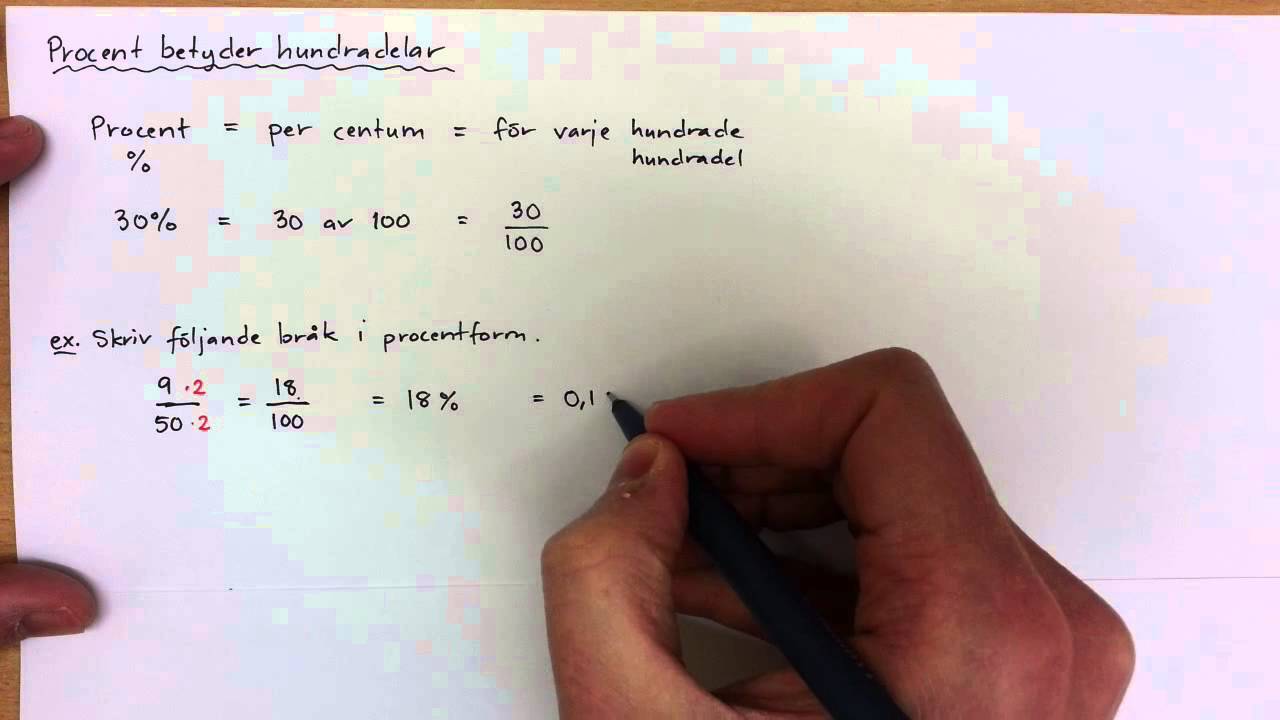 Procent betyder hundradelar
Procent = per centum = för varje hundrade
% hundradel
30% = 30 av 100 = 30/100
ex. Skriv följande bråk i procentform.
9·2/50·2 = 18/100 = 18% = 0,1